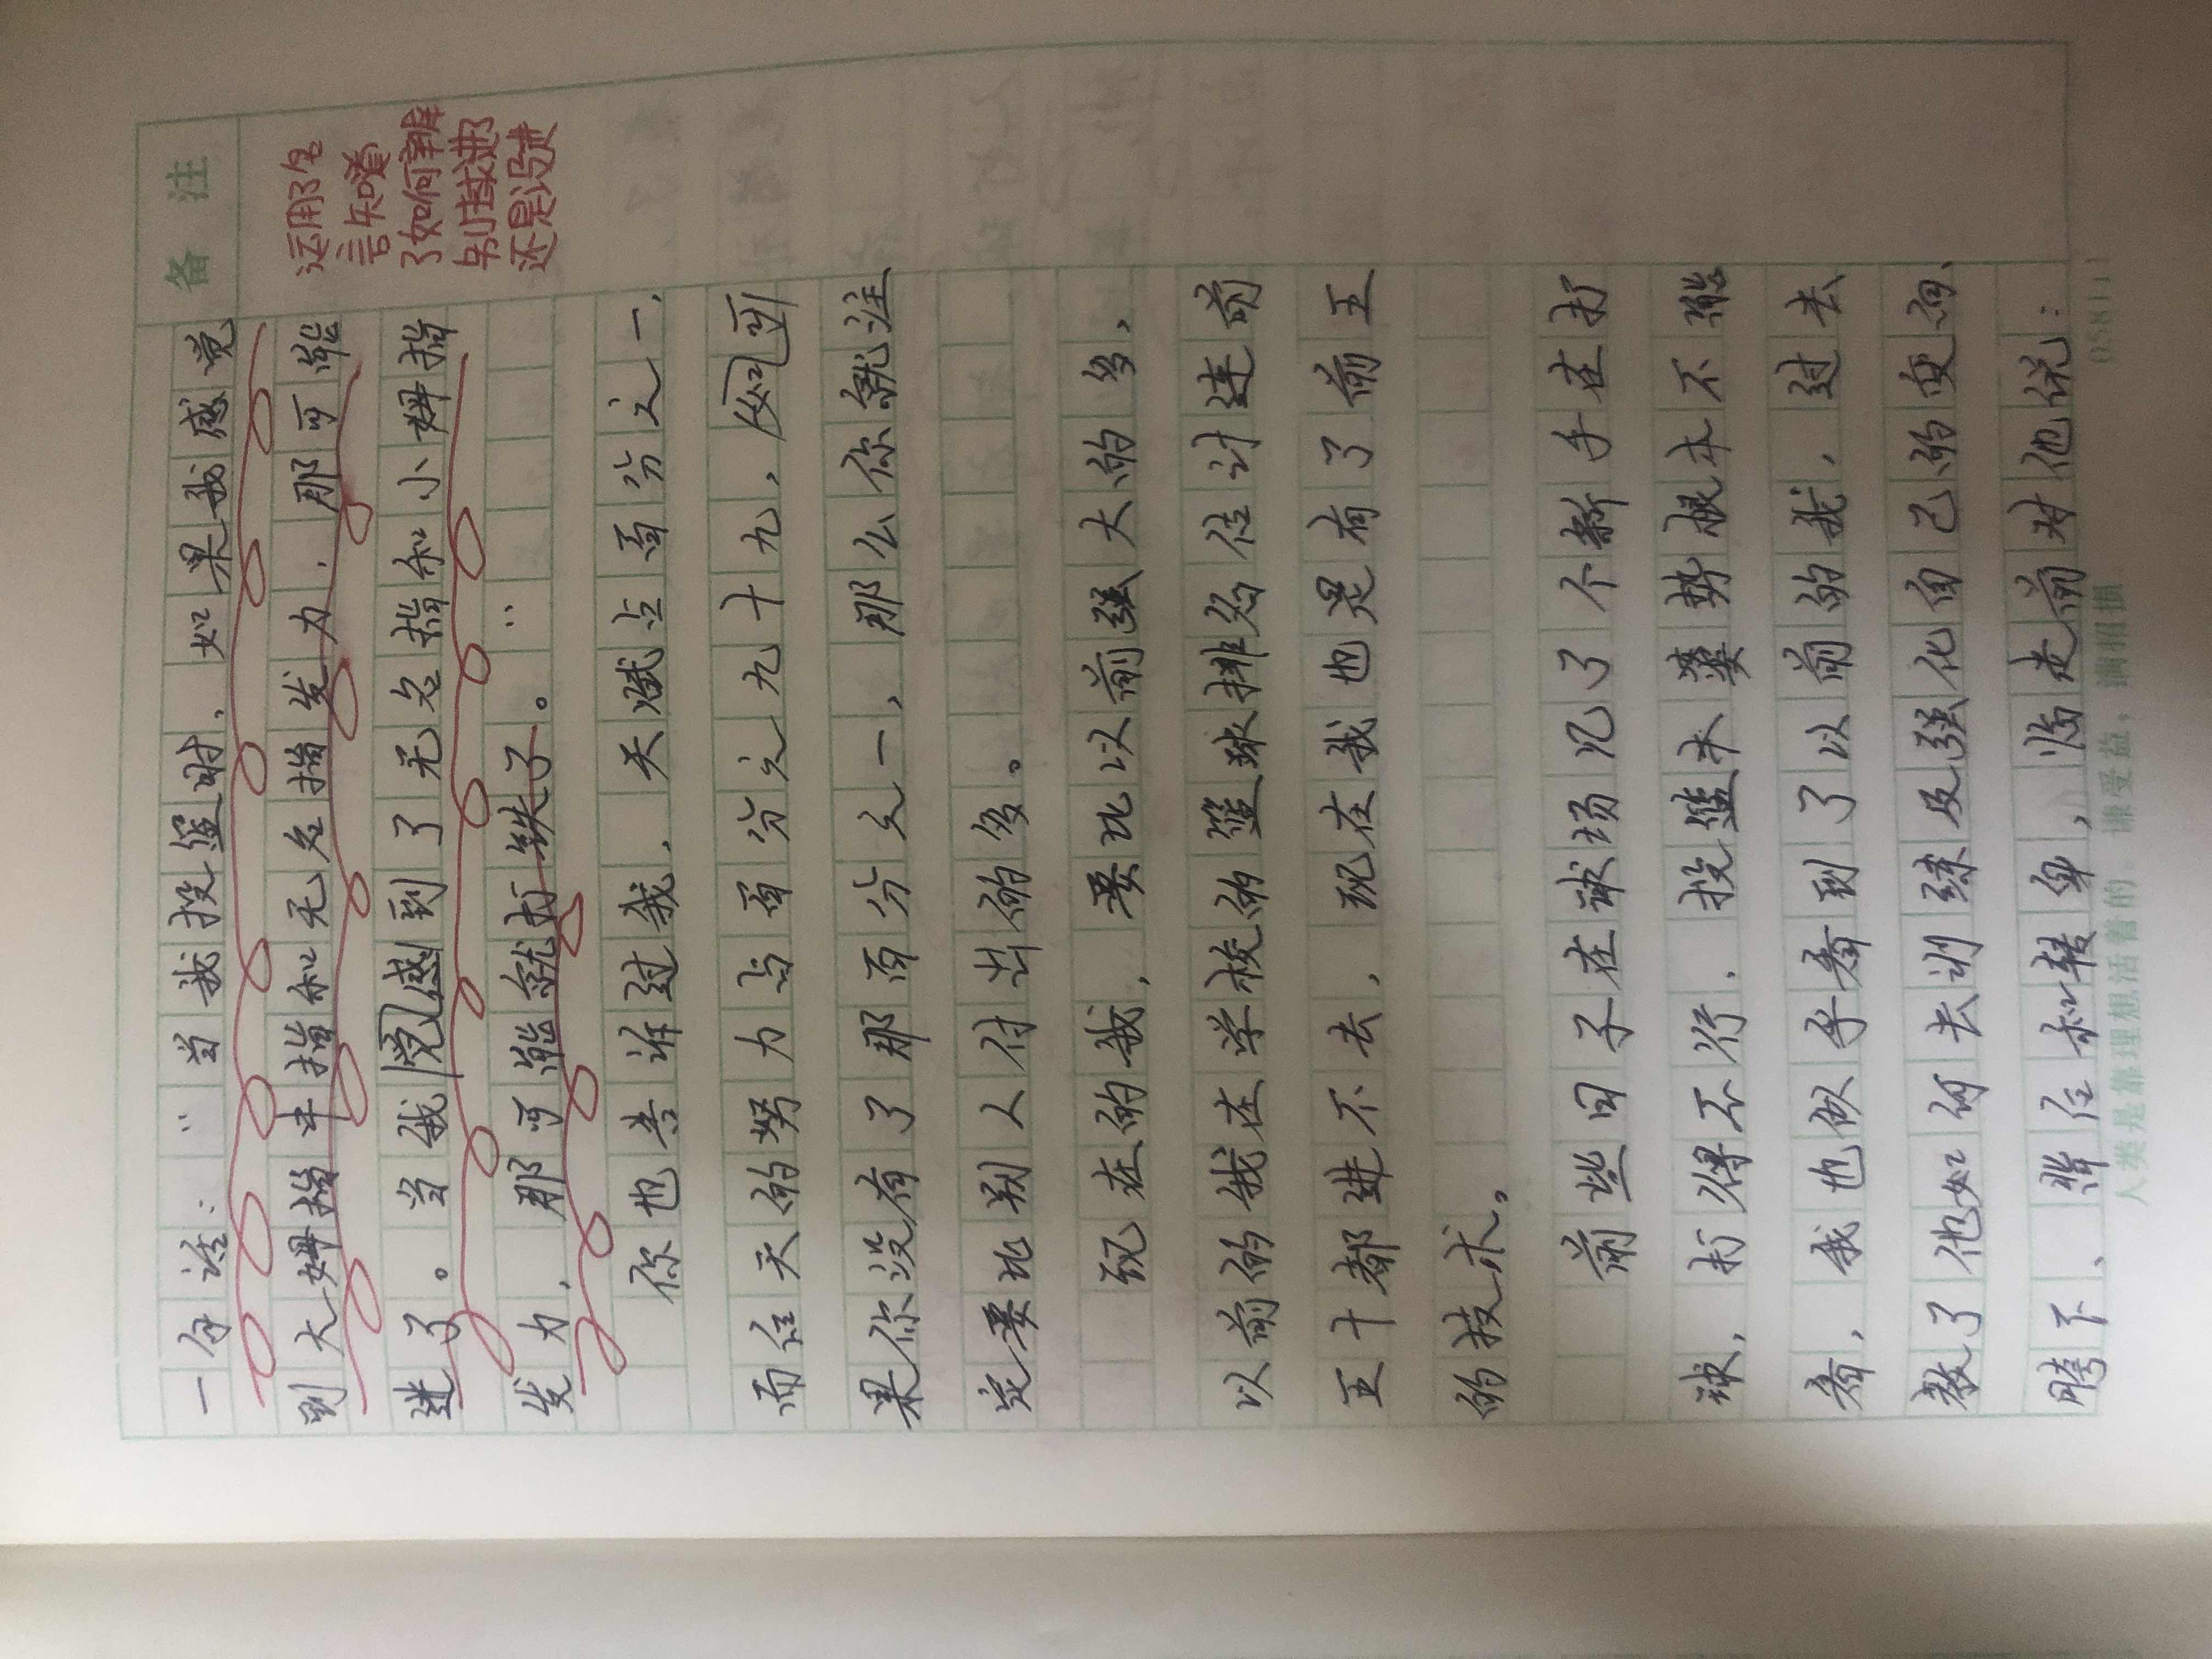 备 注
一句话：“当我投篮时，如果我感觉
到大姆指丰指和无名指发力，那可能
进了。当我觉感到了无名指和小姆指
发力，那可能就打铁了。”
运用了名
言知道
了如何辨
别球进了
还是没进
你也告诉过我，天赋占百分之一，
而后天的努力占百分之九十九，如
果你没有了那百分之一，那么你就注
定要比别人付出的多。
现在的我，要比以前强大的多，
以前的我在学校的篮球排名估计连前
五十都进不去，现在我也是有了前五
的技术。
前些日子在球场见了个新手在打
球，打得不行，投篮末婆势根本不能
看，我也似乎看到了以前的我，过去
教了他如何去训练及强化自己的变向、
胯下、背后和转身，临走前对他说：
人类是靠理想活着的 谦受益，满招损 DS8111